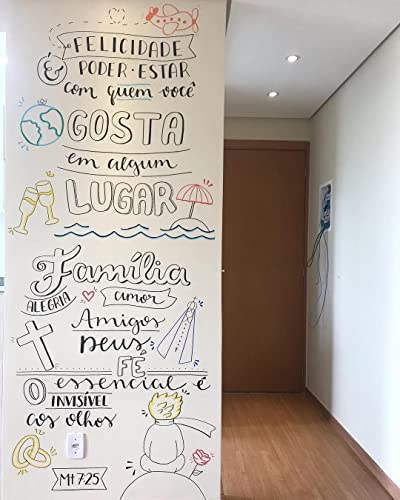 FELICIDADE
É PODER·ESTAR
com quem você
GOSTA
em algum
LUGAR
Família
ALEGRIA amor
Amigos
Deus
FÉ
O essencial é
INVISÍVEL
aos olhos
Mt 7:25